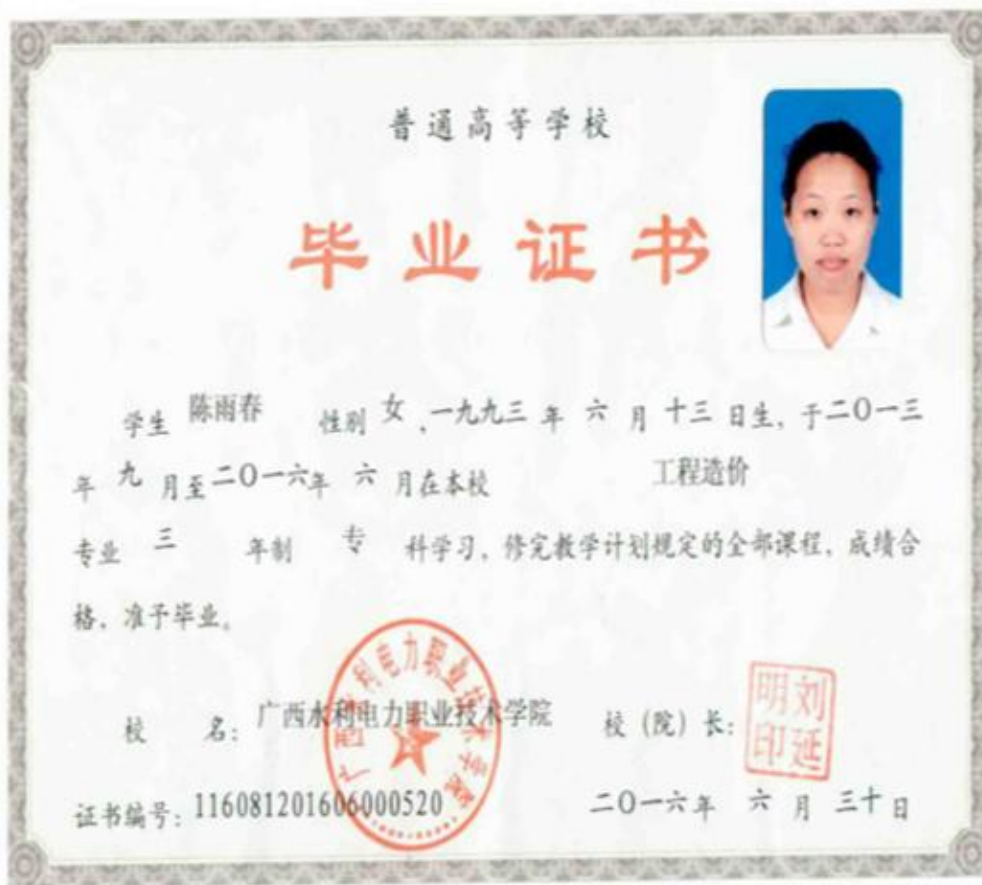 普通高等学校
毕业证书
学生 陈雨春 性别 女,一九九三 年 六 月 十三 日生,于二〇一三
年 九 月至二〇一六年 六 月在本校 工程造价
专业 三 年制 专 科学习,修完教学计划规定的全部课程,成绩合
格,准予毕业。
校 名:广西水利电力职业技术学院 校(院)长:
刘延明印
广西水利电力职业技术学院
证书编号:116081201606000520 二〇一六年 六 月 三十日